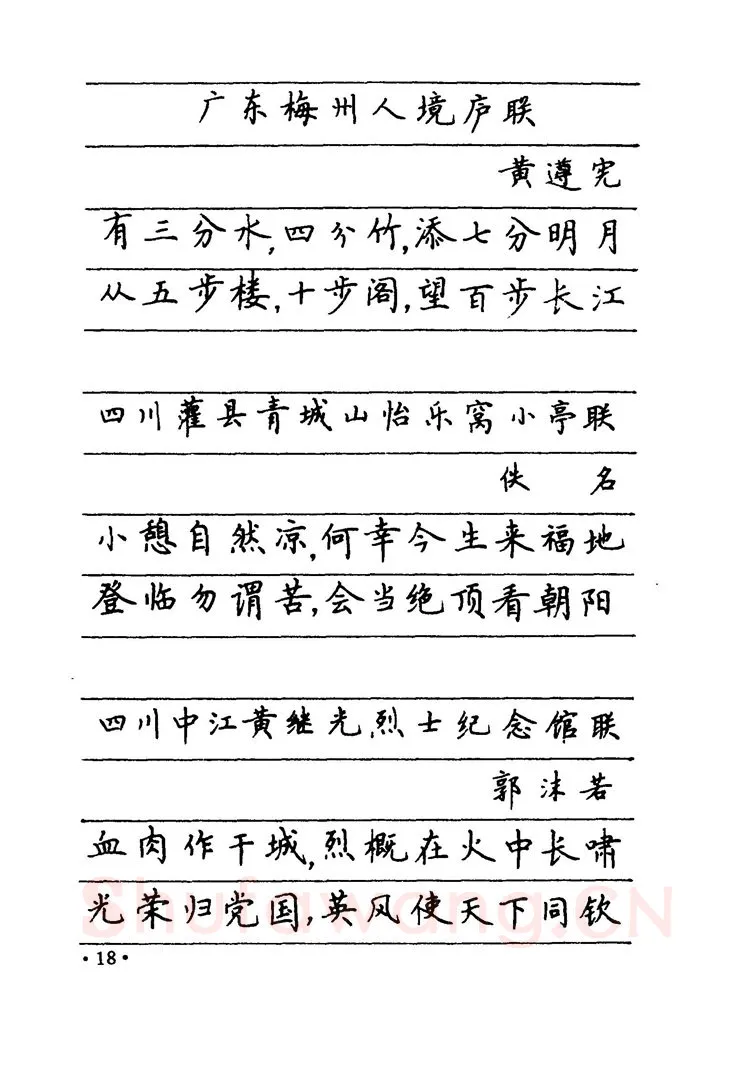 广东梅州人境庐联
黄遵宪
有三分水,四分竹,添七分明月
从五步楼,十步阁,望百步长江
四川灌县青城山怡乐窝小亭联
佚名
小憩自然凉,何幸今生来福地
登临勿谓苦,会当绝顶看朝阳
四川中江黄继光烈士纪念馆联
郭沫若
血肉作干城,烈概在火中长啸
光荣归党国,英风使天下同钦
Shufawang.CN
·18·